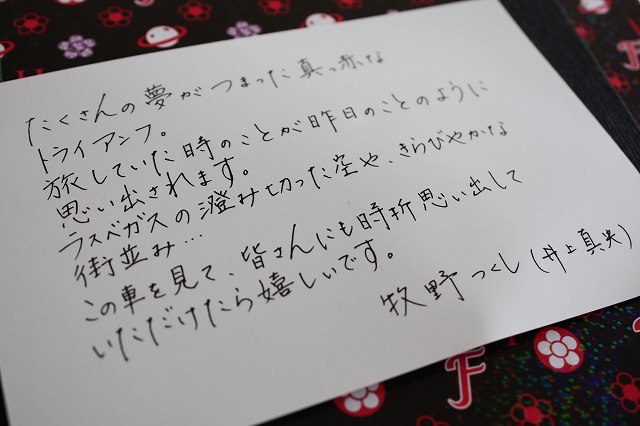 たくさんの夢がつまった真っ赤な
トライアンフ。
旅していた時のことが昨日のことのように
思い出されます。
ラスベガスの澄み切った空や、きらびやかな
街並み…
この車を見て、皆さんにも時折思い出して
いただけたら嬉しいです。
牧野つくし(井上真央)
F